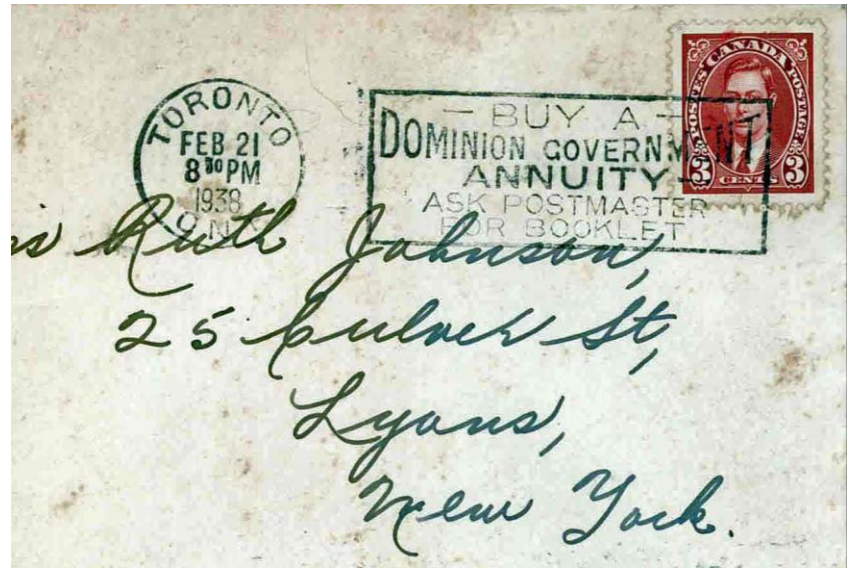 TORONTO
FEB 21
8 30 PM
1938
ONT.
— BUY A —
DOMINION GOVERNMENT
ANNUITY
ASK POSTMASTER
FOR BOOKLET
CANADA
POSTES POSTAGE
3 CENTS 3
Ruth Johnson,
25 Culver St,
Lyons,
New York.